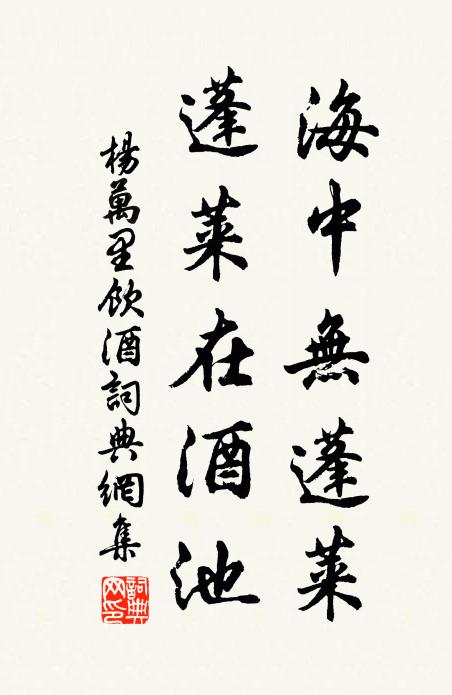 海中無蓬萊
蓬萊在酒池
楊萬里飲酒詞典網集
詞典网印